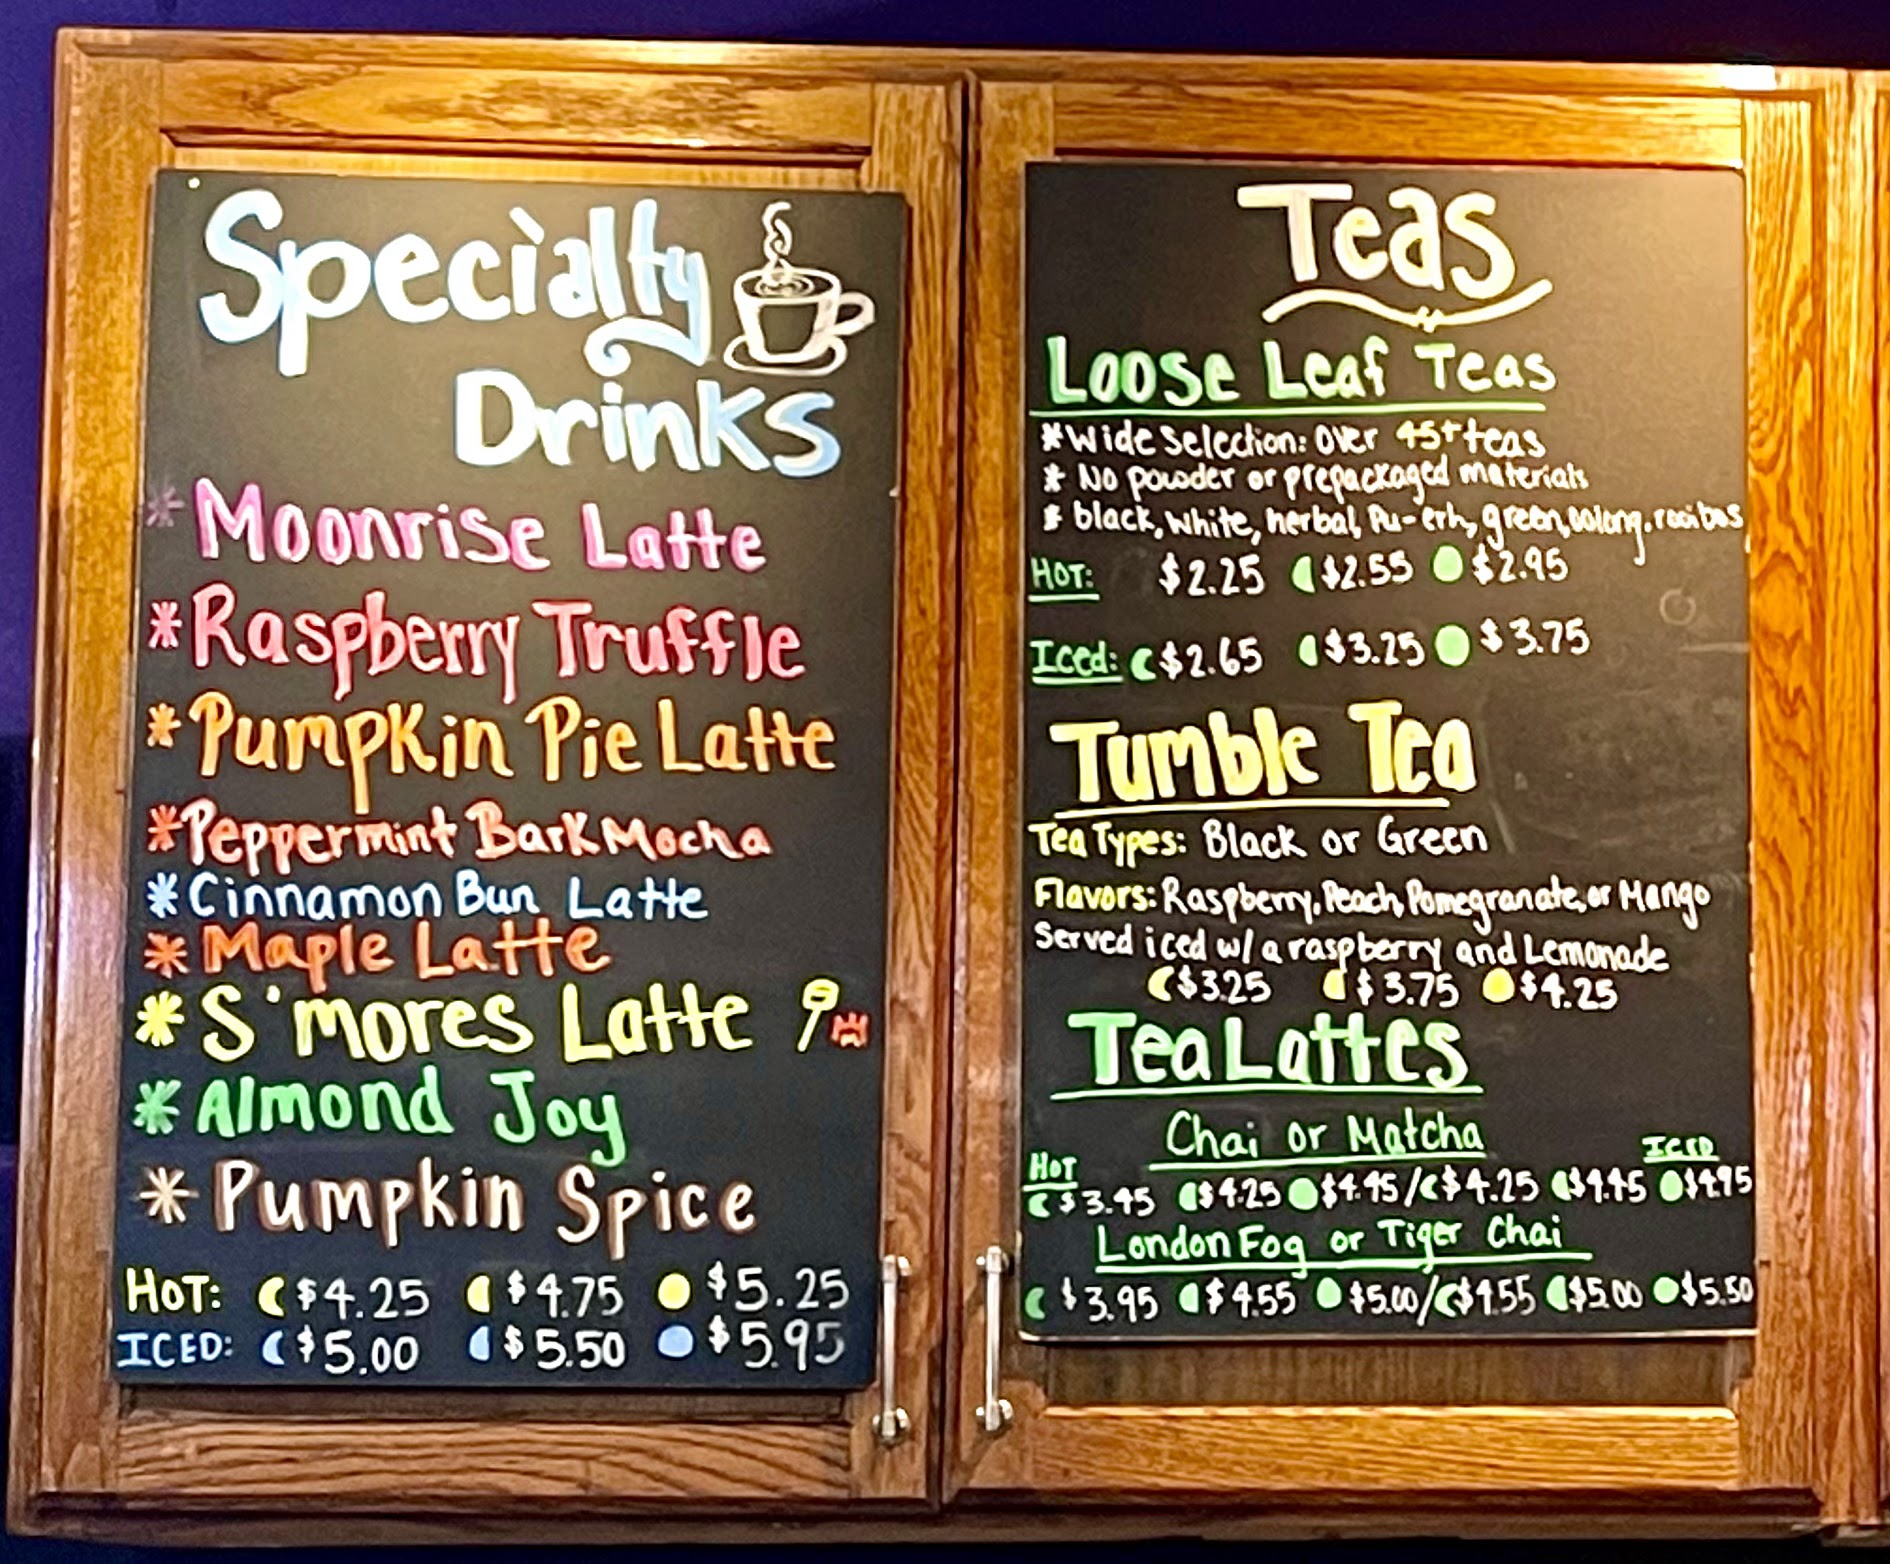 Specialty
Drinks
* Moonrise Latte
* Raspberry Truffle
* Pumpkin Pie Latte
* Peppermint Bark Mocha
* Cinnamon Bun Latte
* Maple Latte
* S'mores Latte
* Almond Joy
* Pumpkin Spice
HOT: $4.25 $4.75 $5.25
ICED: $5.00 $5.50 $5.95
Teas
Loose Leaf Teas
* Wide Selection: Over 45+ teas
* No powder or prepackaged materials
* black, white, herbal, Pu-erh, green, oolong, rooibos
HOT: $2.25 $2.55 $2.95
Iced: $2.65 $3.25 $3.75
Tumble Tea
Tea Types: Black or Green
Flavors: Raspberry, Peach, Pomegranate, or Mango
Served iced w/ a raspberry and Lemonade
$3.25 $3.75 $4.25
Tea Lattes
Chai or Matcha
HOT ICED
$3.45 $4.25 $4.45 / $4.25 $4.45 $4.95
London Fog or Tiger Chai
$3.95 $4.55 $5.00 / $4.55 $5.00 $5.50